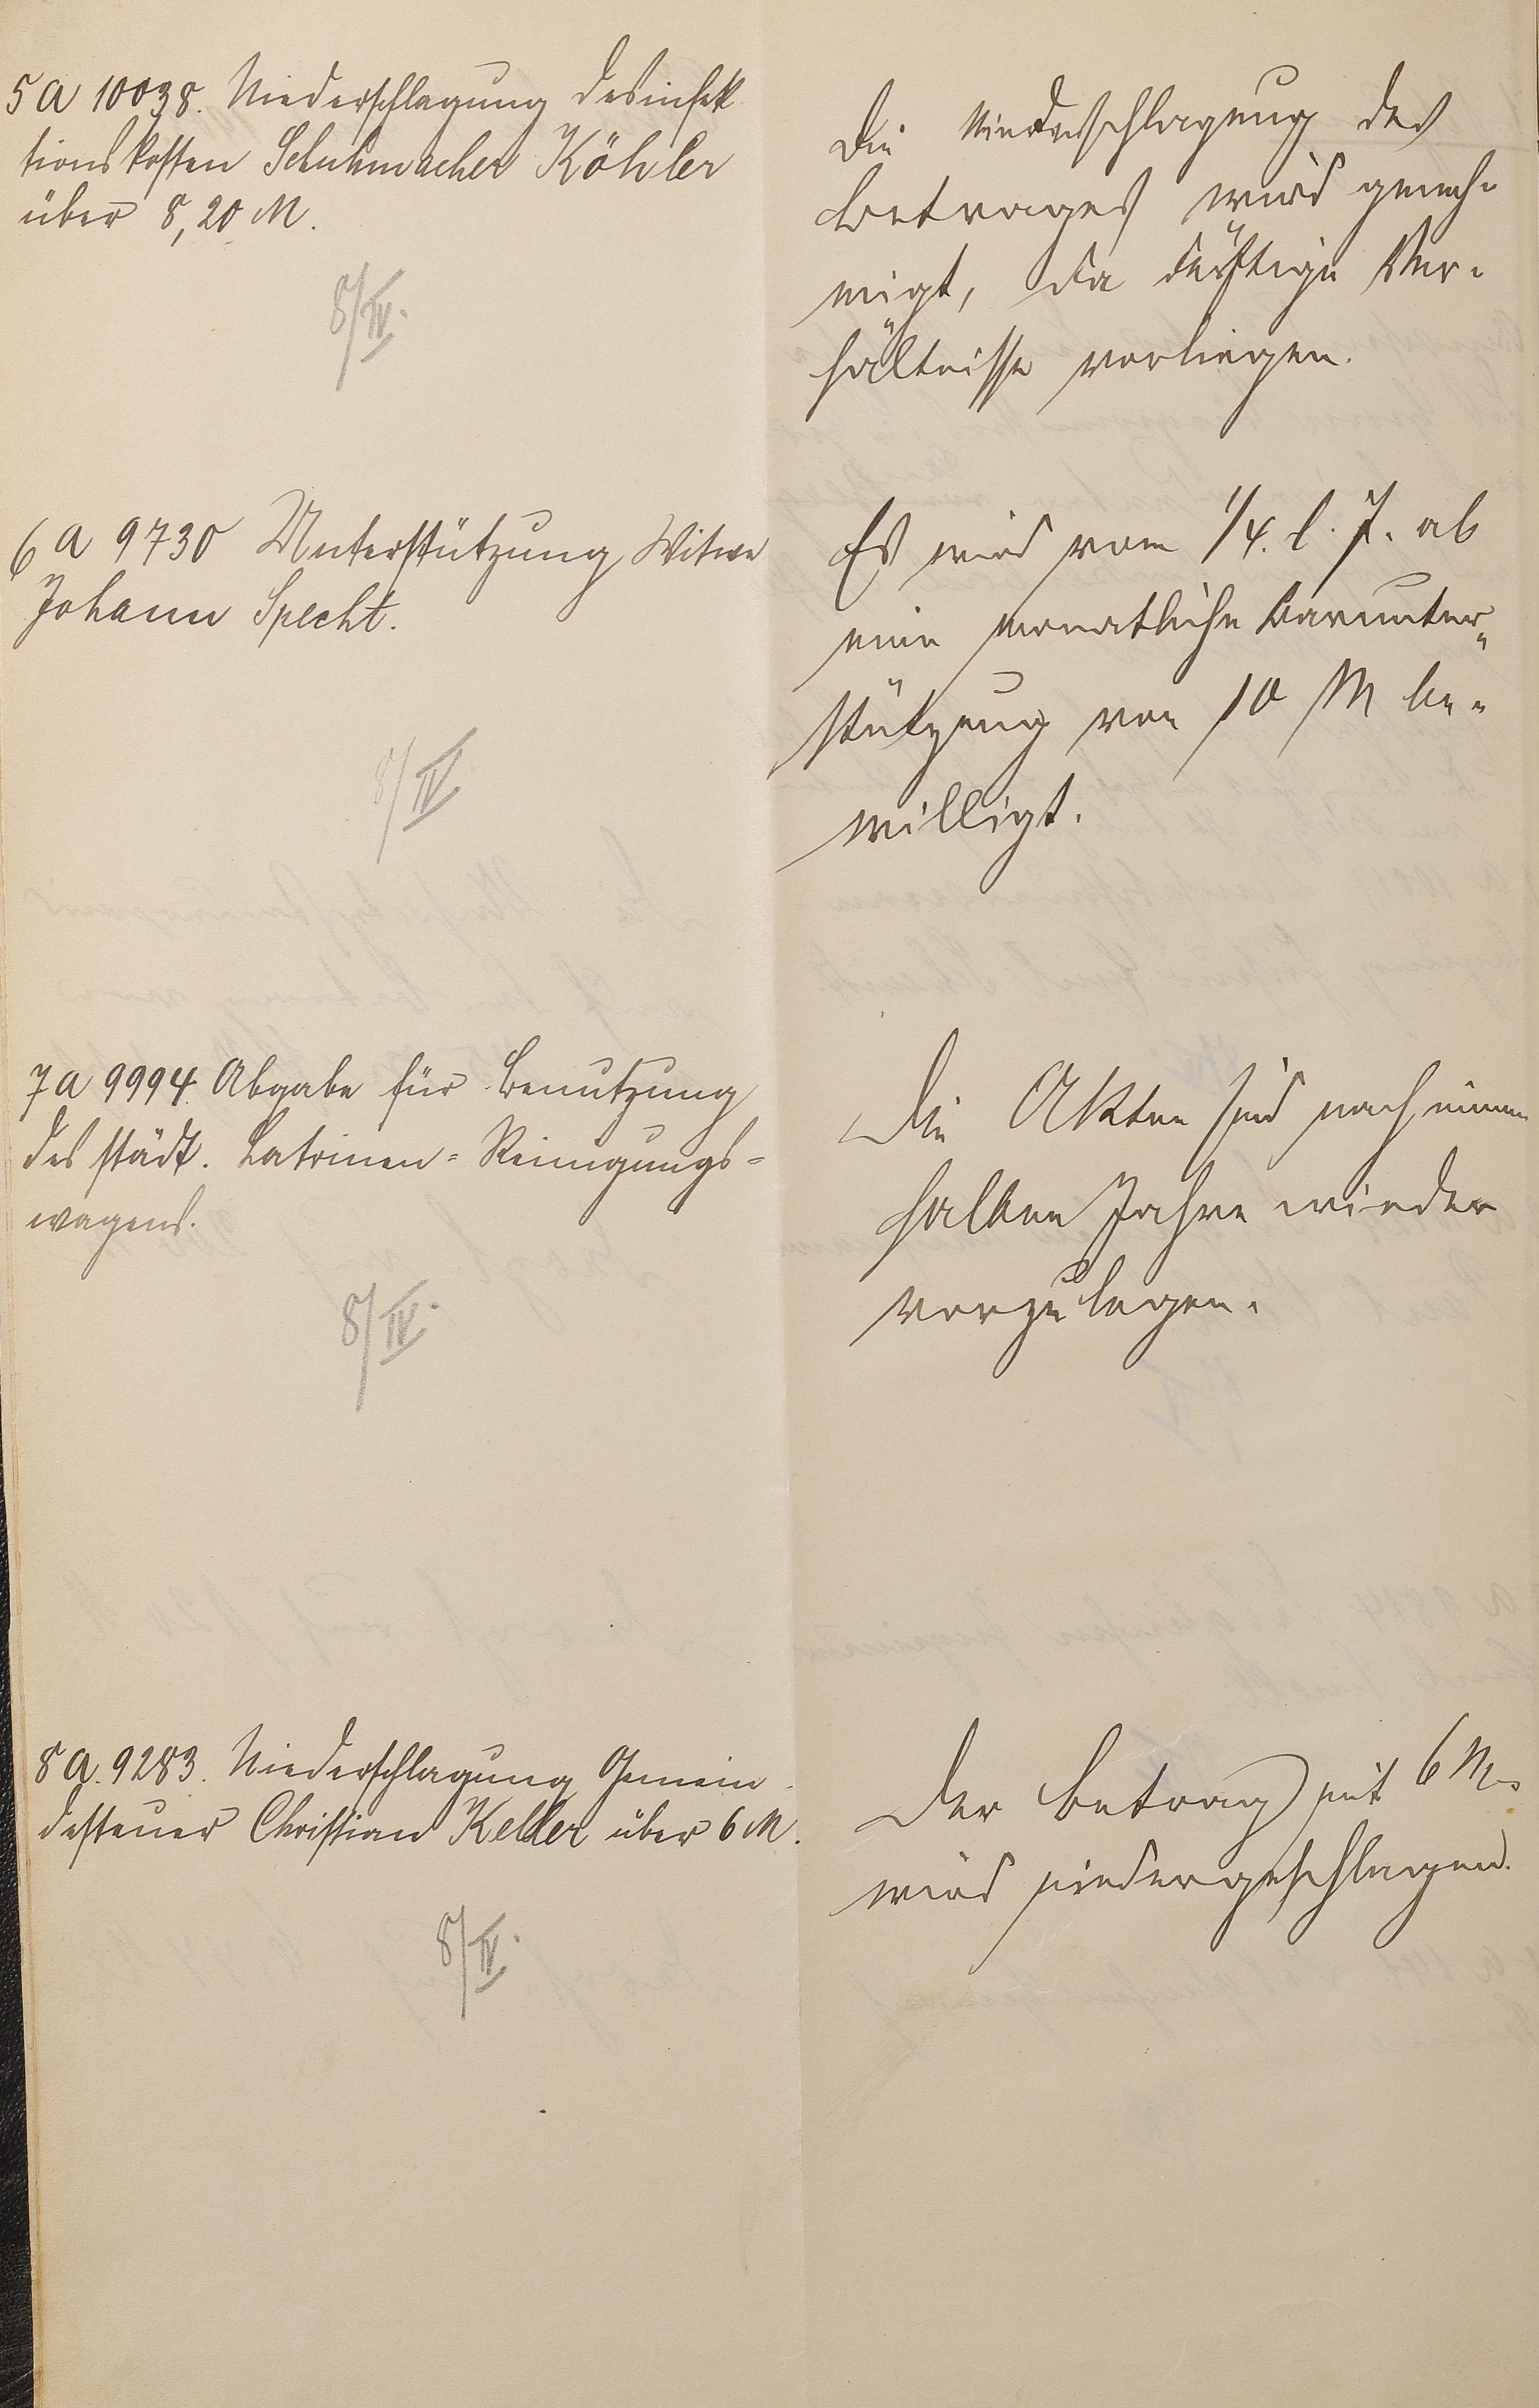 5 A 10038. Niederschlagung Desinfek
tionskosten Schuhmacher Köhler
über 8,20 M.
8/IV.
Die Niederschlagung des
Betrages wird geneh-
migt, da dürftige Ver-
hältnisse vorliegen.
6 A 9730 Unterstützung Witwe
Johann Specht.
8/IV
Es wird vom 1/4. l. J. ab
eine monatliche Barunter-
stützung von 10 M be-
willigt.
7 A 9994. Abgabe für Benutzung
des städt. Latrinen-Reinigungs-
wagens.
8/IV.
Die Akten sind nach einem
halben Jahre wieder
vorzulegen.
8 A. 9283. Niederschlagung Gemein-
desteuer Christian Keller über 6 M.
8/IV.
Der Betrag mit 6 M.
wird niedergeschlagen.